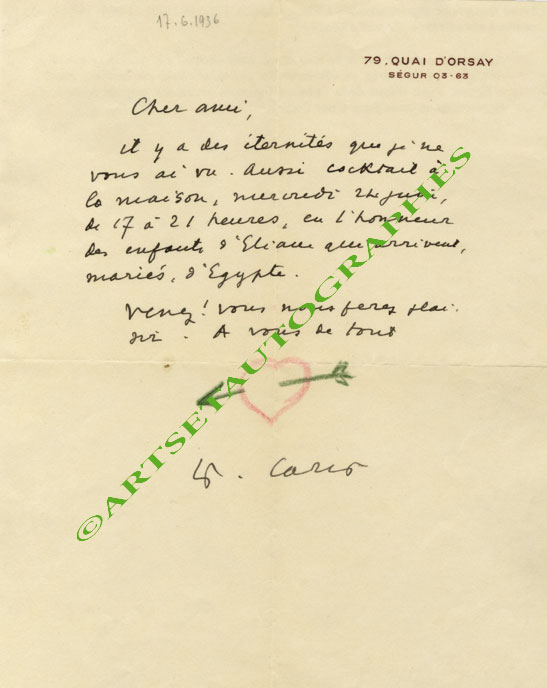 17.6.1936
79. QUAI D'ORSAY
SÉGUR 03-63
Cher ami,
il y a des éternités que je ne
vous ai vu. Aussi cocktail à
la maison, mercredi 24 juin,
de 17 à 21 heures, en l'honneur
des enfants d'Eliane qui arrivent,
mariés, d'Egypte.
Venez! vous nous ferez plai-
sir. A vous de tout
©ARTSETAUTOGRAPHES